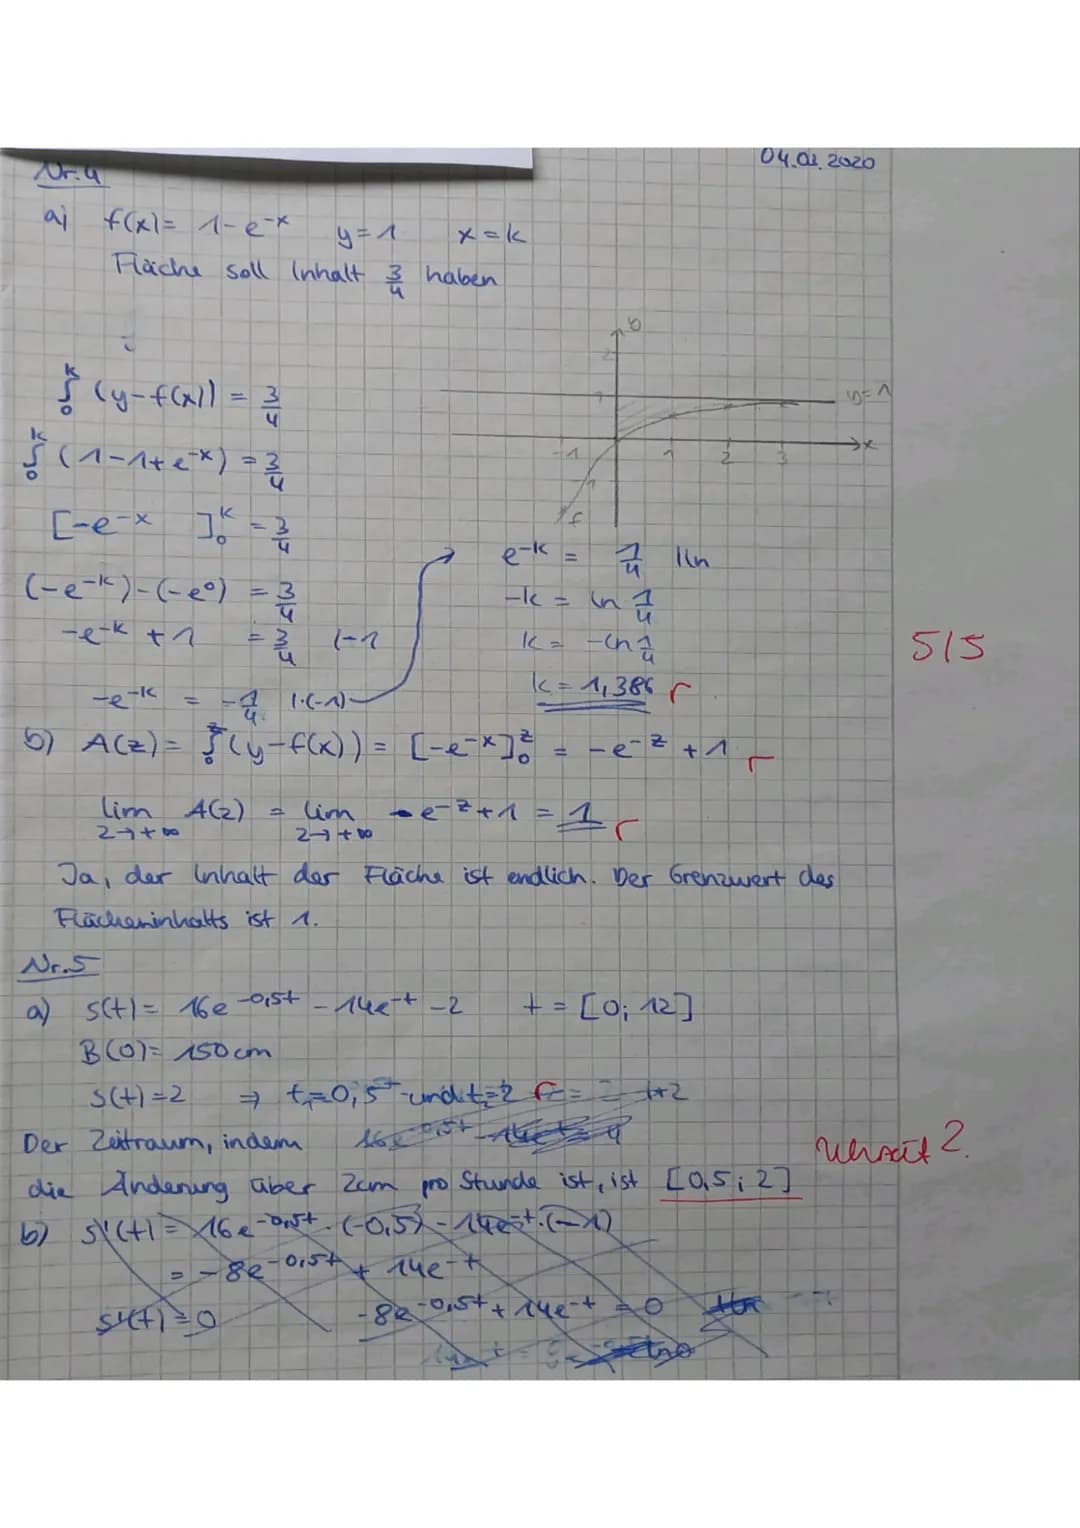 04.03.2020
Nr.4
a) f(x)= 1-e^-x y=1 x=k
Fläche soll Inhalt 3/4 haben
∫₀^k (y-f(x)) = 3/4
∫₀^k (1-1+e^-x) = 3/4
[-e^-x ]₀^k = 3/4
(-e^-k)-(-e^0) = 3/4
-e^-k + 1 = 3/4 |-1
-e^-k = -1/4 |·(-1)
2
1
y=1
x
-1 1 2 3
-1
f
e^-k = 1/4 |ln
-k = ln 1/4
k = -ln 1/4
k = 1,386 r
5/5
b) A(z) = ∫₀^z (y-f(x)) = [-e^-x]₀^z = -e^-z + 1 r
lim A(z) = lim -e^-z + 1 = 1 r
z→+∞ z→+∞
Ja, der Inhalt der Fläche ist endlich. Der Grenzwert des
Flächeninhalts ist 1.
Nr.5
a) s(t) = 16e^-0,5t - 14e^-t - 2 t = [0; 12]
B(0) = 150cm
s(t) = 2 ⇒ t₁=0,5 und t₂=2 r
Der Zeitraum, indem
die Änderung über 2cm pro Stunde ist, ist [0,5; 2]
b) s'(t) = 16e^-0,5t · (-0,5) - 14e^-t · (-1)
= -8e^-0,5t + 14e^-t
s'(t) = 0 -8e^-0,5t + 14e^-t = 0